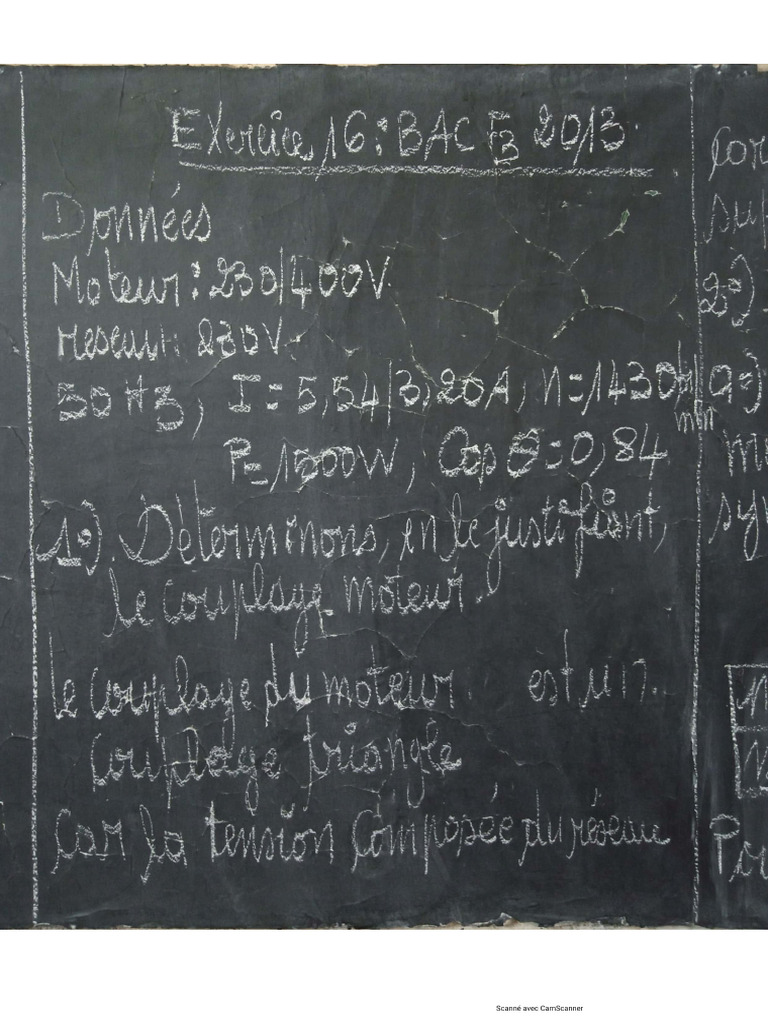 Exercice 16 : BAC F3 2013.
Données
Moteur : 230/400V
réseau 230V.
50 Hz, I = 5,54/3,20A, n = 1430tr/min
P = 1500W, Cos θ = 0,84
1°). Déterminons, en le justifiant,
le couplage moteur.
le couplage du moteur. est un.
couplage triangle
Car la tension composée du réseau
2°)
a°)
Scanné avec CamScanner